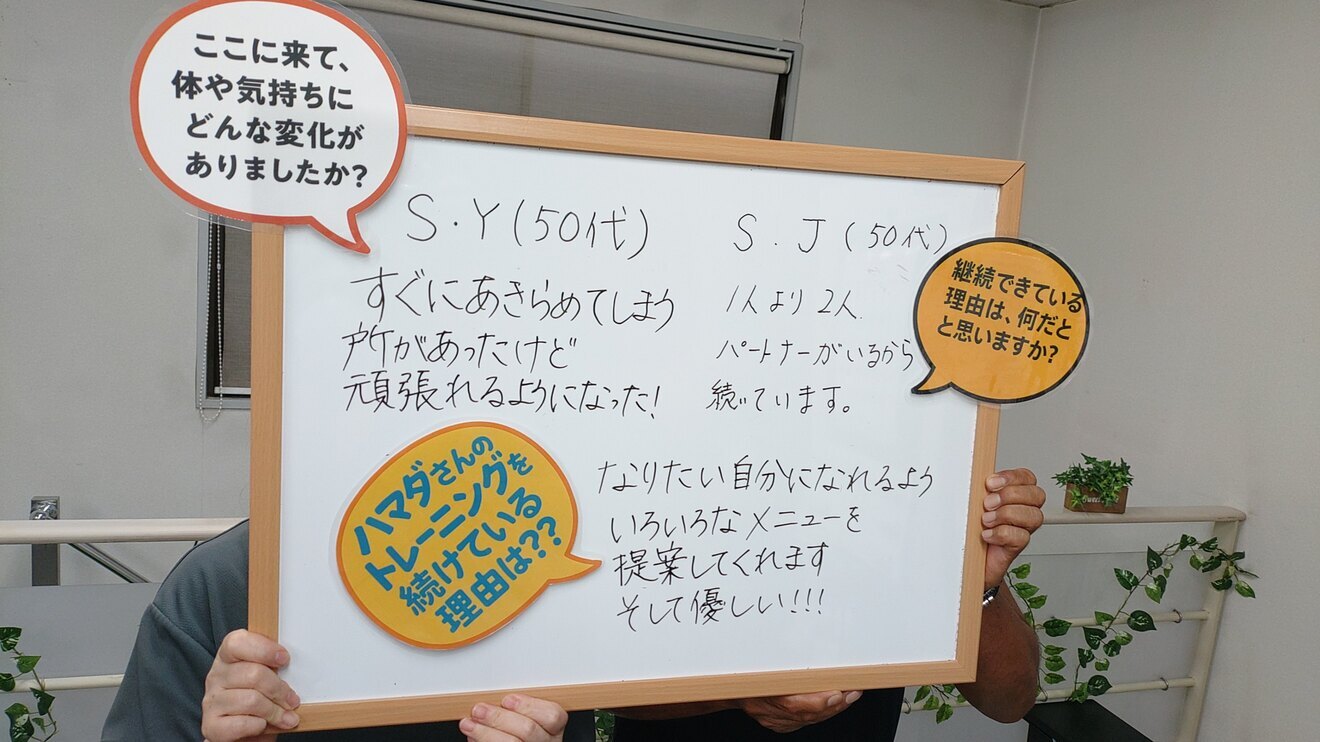 ここに来て、
体や気持ちに
どんな変化が
ありましたか?
S・Y(50代)
すぐにあきらめてしまう
所があったけど
頑張れるようになった!
S.J(50代)
1人より2人.
パートナーがいるから
続いています。
継続できている
理由は、何だと
と思いますか?
ハマダさんの
トレーニングを
続けている
理由は??
なりたい自分になれるよう
いろいろなメニューを
提案してくれます
そして優しい!!!